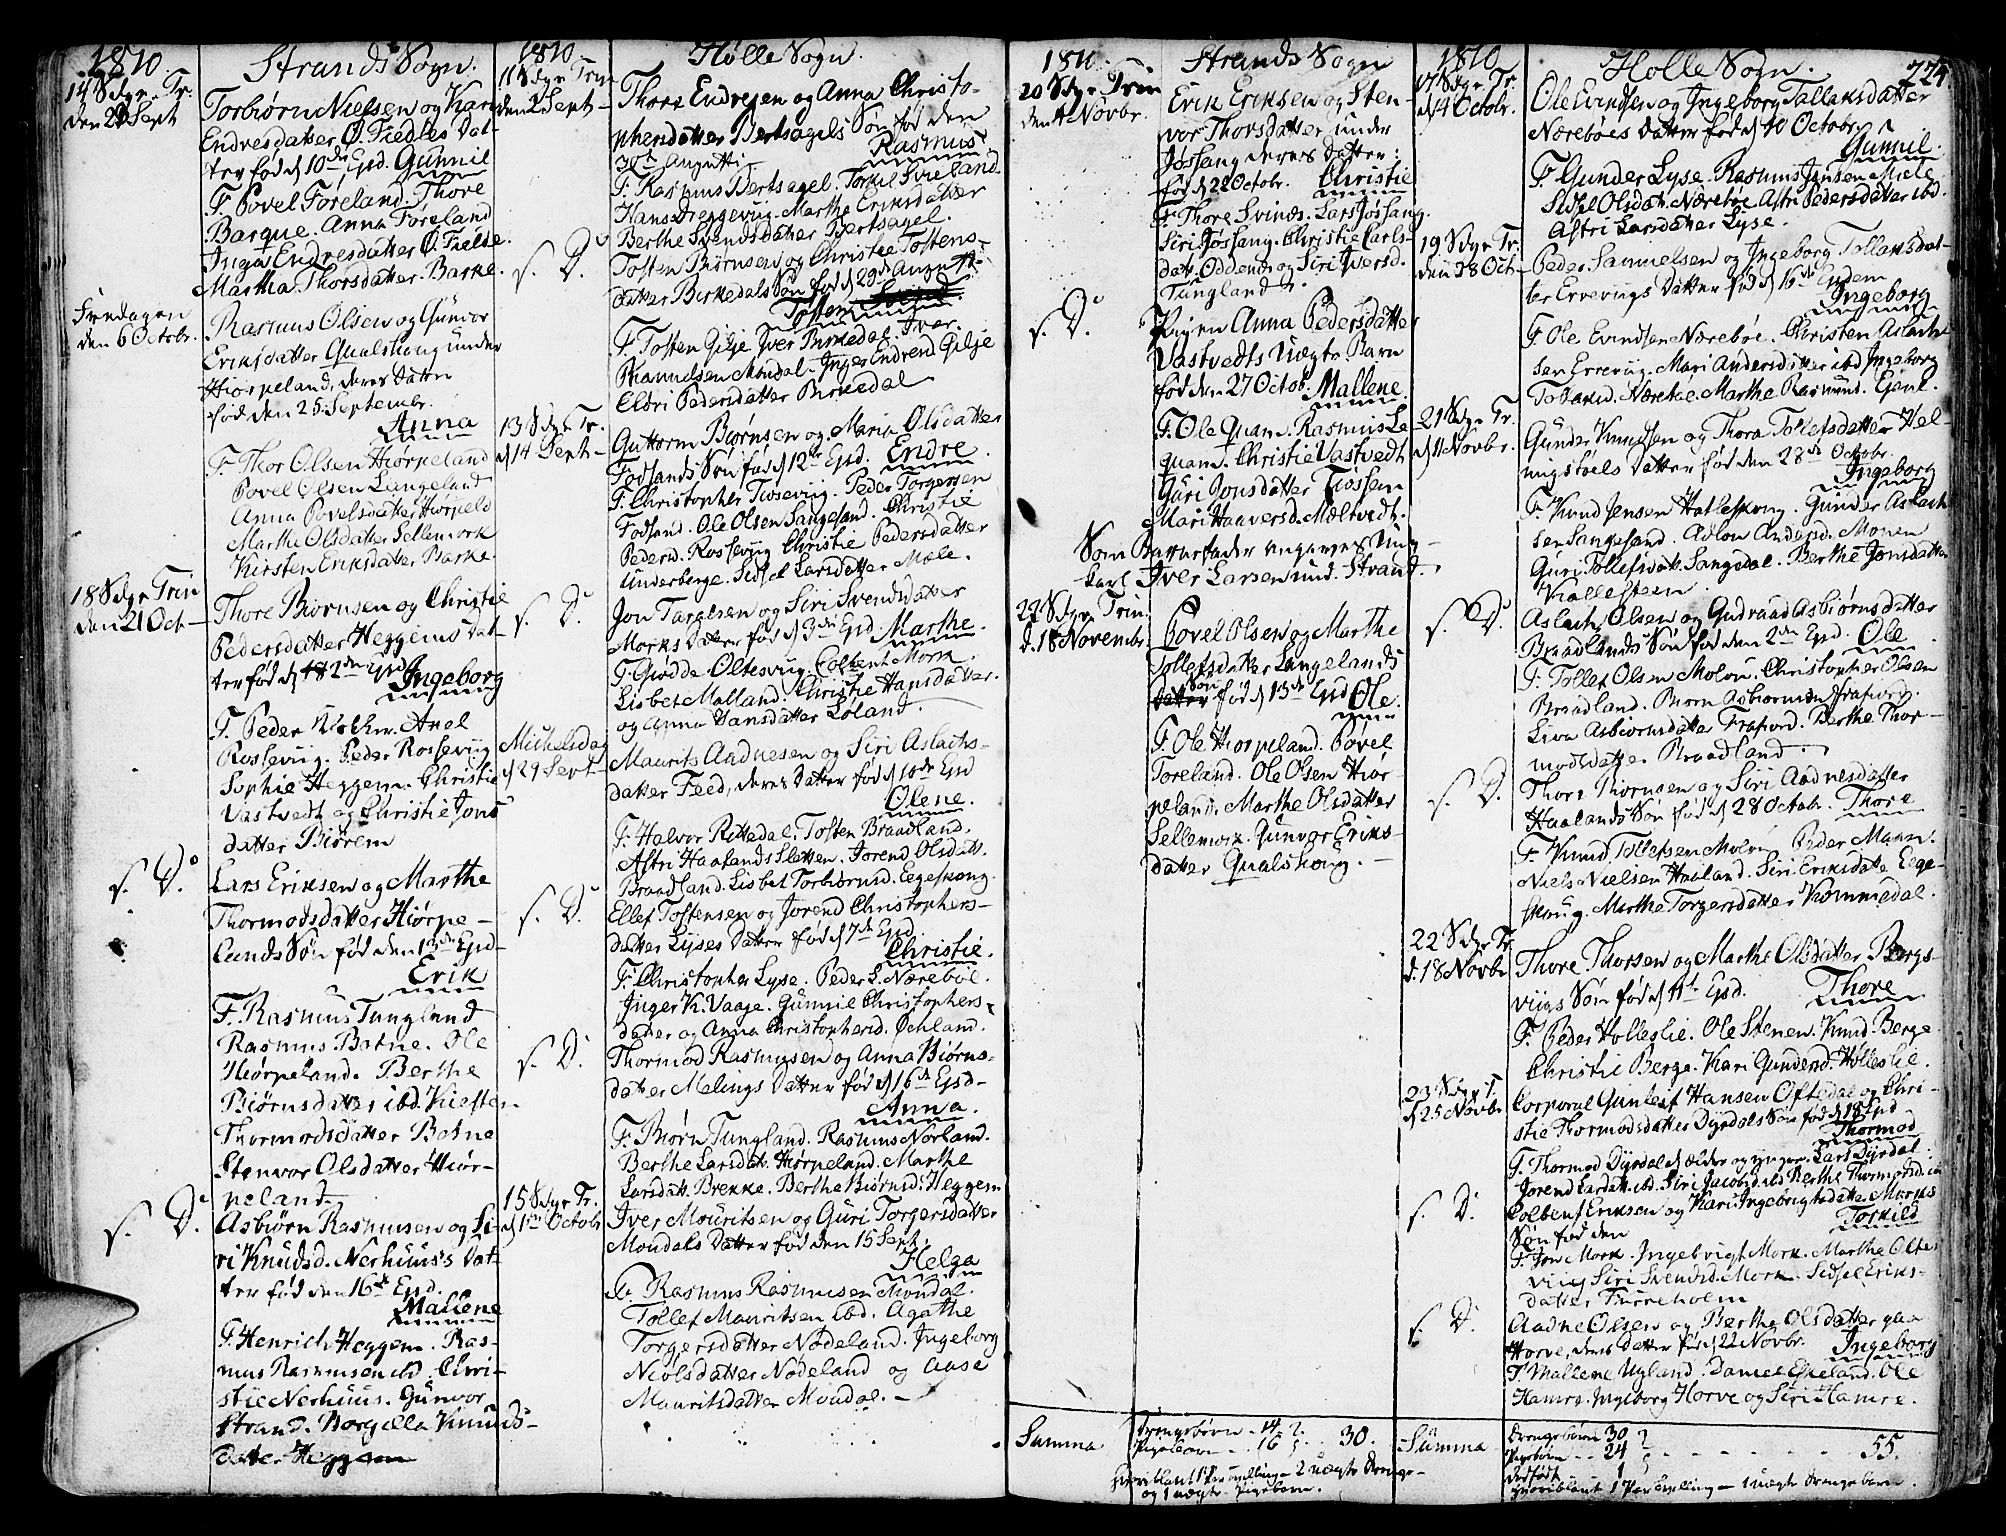 1810.
Strands Sogn.
14 Sdgr Tr:
den 2 Sept
Torbiørn Nielsen og Kari
Endresdatter Ø. Fiedles Dat-
ter fød d 10de Ejsd. Gunnil
F. Povel Føreland. Thore
Barque. Anna Føreland
Inga Endresdatter Ø. Fielde.
Martha Thorsdatter. Barke.
Fredagen
den 6 Octobr.
Rasmus Olsen og Gunvor
Eriksdatter Qualshoug under
Hiorpeland, deres Datter
fød den 25 Septembr.
Anna
F. Thor Olsen Hiørpeland
Povel Olsen Langeland
Anna Povelsdatter Hiørpeld
Marthe Olsdatter Sellemork
Kirsten Eriksdatter Barke.
18 Sdgr Trin
den 21 Oct
Thore Biørnsen og Christie
Pedersdatter Heggems Dat-
ter fød d 12de Ejsd
Ingeborg
F. Peder Axel
Rossevug. Peder Rossevug
Sophie Heggem. Christie
Vastvedt og Christie Jons
datter Biørem
s. D.
Lars Eriksen og Marthe
Thormodsdatter Hiørpe-
lands Søn fød den 13de Ejsd
Erik
F. Rasmus Tungland
Rasmus Botne. Ole
Hiørpeland. Berthe
Biørnsdatter ibd. Kiesten
Thormodsdatter Botne
Stenvor Olsdatter Hiør-
peland
s. D.
Asbiørn Rasmusen og Si-
ri Knudsd. Nerhuus's Dat-
ter fød den 16de Ejsd.
Mallene
F. Henrich Heggem. Ras-
mus Rasmusen ibd. Chri-
stie Nerhuus. Gunvor
Strand. Borgilla Knuds-
datter Heggem
1810.
Hølle Sogn.
11 Sdgr Trin
den 2 Sept
Thore Endresen og Anna Christo-
phersdatter Bertsagels Søn fød den
30te Augusti
Rasmus
F. Rasmus Bertsagel. Torkil Svieland
Hans Dreggevug. Marthe Eriksdatter
Berthe Svendsdatter Bertsagel.
s. D.
Tosten Biørnsen og Christie Tostens-
datter Birkedals Søn fød d 29de August
Tosten
F. Tosten Gilje. Iver Birkedal. Iver
Rasmusen Mondal. Inger Endresd Gilje
Eldri Pedersdatter Birkedal
13 Sdgr Tr.
d 14 Sept
Guttorm Biørnsen og Maria Olsdatter
Fodlands Søn fød d 12te Ejsd. Endre
F. Christopher Tiosevug. Peder Torgersen
Fodland. Ole Olsen Sangesand. Christie
Pedersd. Rossevug Christie Pedersdatter
Underberge. Sidsel Larsdatter Mæle.
s. D.
Jon Targelsen og Siri Svendsdatter
Morks Datter fød d 3die Ejsd Marthe.
F. Giødde Oltesvug. Colbent Mork
Lisbet Malland. Christie Hansdatter
og Anna Hansdatter Løland.
Michelsdag
d 29 Sept
Maurits Aadnesen og Siri Aslachs-
datter Feed, deres Datter fød d 10de Ejsd
Olene.
F. Halvor Rettedal. Tosten Braadland.
Astri Haalands Sletten. Jorend Olsdatt.
Braadland. Lisbet Torbiørnsd. Eegeskoug.
s. D.
Ellef Tostensen og Jorend Christophers-
datter Lyses Datter fød d 7de Ejsd
Christie.
F. Christopher Lyse. Peder S. Nærebøe.
Inger K. Vaage. Gunnil Christophers-
datter og Anna Christophersd. Ochland.
s. D.
Thormod Rasmusen og Anna Biørns-
datter Melings Datter fød d 16de Ejsd
Anna.
F. Biørn Tungland. Rasmus Norland.
Berthe Larsdatt. Hiørpeland. Marthe
Larsdatt. Brekke. Berthe Biørnsd. Heggem
15 Sdgr Tr.
d 1ste Octobr
Iver Mouritsen og Guri Torgersdatter
Mondals Datter fød den 15 Sept.
Helga
F. Rasmus Rasmusen Mondal.
Tollef Mauritsen ibd. Agathe
Torgersdatter Nødeland. Ingeborg
Neolsdatter Nødeland og Aase
Mauritsdatter Mondal.
1810.
Strands Sogn
20 Sdgr Trin
den 4 Novbr.
Erik Eriksen og Sten-
vor Thorsdatter under
Jøssang deres Datter
fød d 22 Octobr. Christie
F. Thore Svines. Lars Jøssang.
Siri Jøssang. Christie Carls-
datt. Oddenes og Siri Iversd.
Tungland.
s. D.
Pigen Anna Pedersdatter
Vastvedts Uægte Barn
fød den 27 Octob. Mallene
F. Ole Quam. Rasmus Le
quam. Christie Vastvedt
Guri Jonsdatter Tiøssem
Mari Haaversd. Mæltvedt.
Som Barnefader angaves Ung-
karl Iver Larsen und. Strand.
22 Sdgr Trin.
d. 18 Novembr
Povel Olsen og Marthe
Tollefsdatter Langelands
Søn fød d 13de Ejsd Ole.
F. Ole Hiorpeland. Povel
Foreland. Ole Olsen Hiør-
peland. Marthe Olsdatter
Sellemork. Gunvor Eriks-
datter Qualshoug.
Summa
Drengebørn - 14
Pigebørn - 16
30.
Hvoriblant 1 Par Tvilling - 2 uægte Drenge-
og 1 uægte Pigebørn.
1810
Holle Sogn.
224.
17 Sdgr Tr.
d 14 Octobr.
Ole Evindsen og Ingeborg Tollaksdatter
Nærebøes Datter fød d 10 Octobr
Gunnil.
F. Gunder Lyse. Rasmus Jensen Miele
Sidsel Olsdat. Nærebøe Astri Pedersdatter ibd.
Astri Larsdatter Lyse.
19 Sdgr Tr.
den 28 Oct
Peder Samuelsen og Ingeborg Tollaksdat-
ter Ervevugs Datter fød d 16de Ejsdem
Ingeborg
F. Ole Evindsen Nærebøe. Christen Aslach-
sen Errevug. Mari Andersdatter ibd Ingeborg
Tollaksd. Nærebøe. Marthe Rasmusd.
21 Sdgr Tr.
d 11 Novbr.
Gunder Knudsen og Thora Tollefsdatter Hel-
migstøels Datter fød den 28de Octobr.
Ingeborg
F. Knud Jensen Hatleskoug. Gunder Aslach-
sen Sangesand. Andersd. Monen
Guri Tollefsdatt. Sangsdal. Berthe Jonsdatter
Kallesteen.
s. D.
Aslach Olsen og Gudraad Asbiørnsdatter
Braadlands Søn fød den 2den Ejsd Ole
F. Tollef Olsen Molon. Christopher Olsen
Braadland. Biørn Asbiornsen Frafiord.
Liva Asbiornsdatter Frafiord. Berthe Thor-
modsdatter Braadland
s. D.
Thore Thorsen og Siri Aadnesdatter
Haalands Søn fød d 28 Octobr. Thore
F. Knud Tollefsen Molon Peder Maan.
Niels Nielsen Haaland. Siri Eriksdatt Eege-
skoug. Marthe Torgersdatter Kommedal.
22 Sdgr Tr.
d. 18 Novbr
Thore Thorsen og Marthe Olsdatter Bergs-
viigs Søn fød d 11te Ejsd. Thore
F. Peder Holleslie. Ole Stenen. Knud Berge.
Christie Berge. Kari Gundersd. Holleslie.
23 Sdgr T.
d 25 Novbr
Corporal Gunleif Hansen Oftedal og Chri-
stie Thormodsdatter Dyrdals Søn fød d 18 Ejsd
Thormod
F. Thormod Dyrdal d ælder og yngre. Lars Dyrdal:
Jorend Larsdatt. ibd. Siri Jacobsd. ibd. Berthe Thormodsd. ibd
s. D.
Colbent Eriksen og Kari Ingebrigtsdatter Morks
Søn fød den
Torkild
F. Jon Mork. Ingebrigt Mork. Marthe Oltes
viig Siri Svendsd. Mork. Sidsel Eriks-
datter Furreholm
s. D.
Aadne Olsen og Berthe Olsdatter paa
Horve, deres Datter fød d 22 Novbr. Ingeborg
F. Mallene Nyland. Daniel Eikeland. Ole
Hamre. Ingeborg Horve og Siri Hamre.
Summa
Drengebørn 30
Pigebørn - 24
Dødfødt 1
55.
Hvoriblant 1 Par Tvilling - 1 uægte Drengebarn.